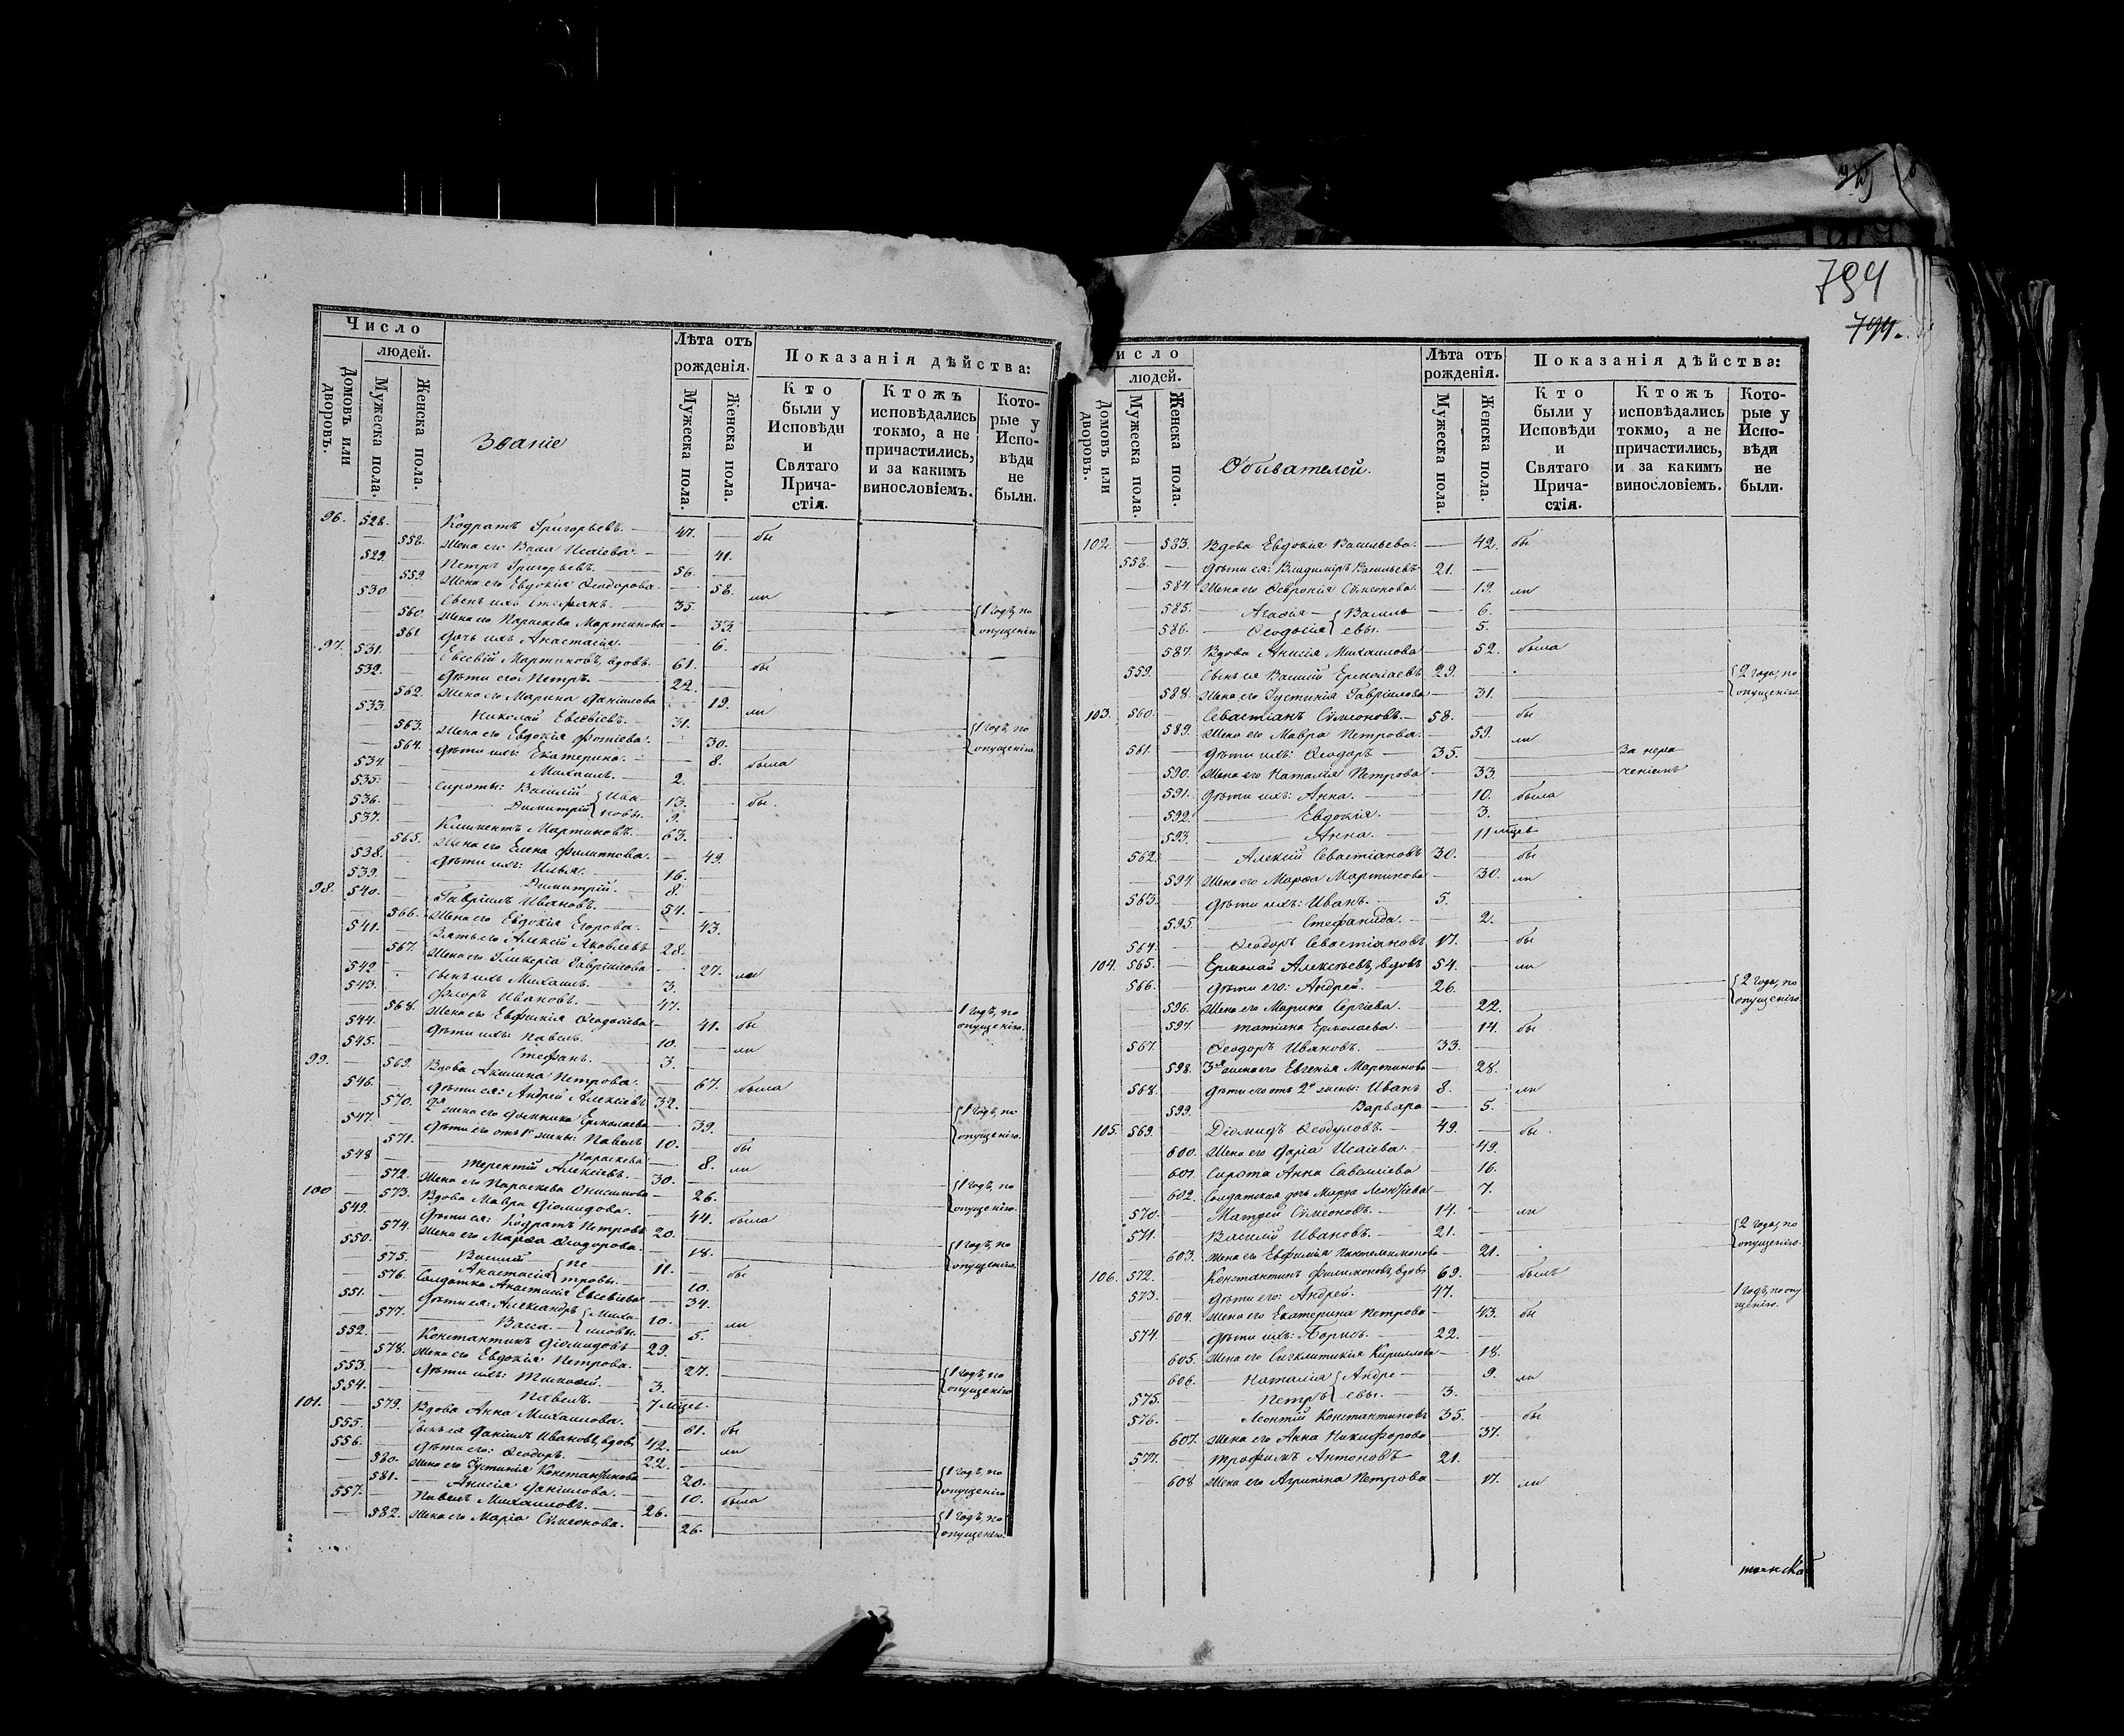 794
799.
Число
людей.
Домовъ или дворовъ.
Мужеска пола.
Женска пола.
Званіе
Лѣта отъ рожденія.
Мужеска пола.
Женска пола.
Показанія дѣйства:
Кто были у Исповѣди и Святаго Причастія.
Ктожъ исповѣдались токмо, а не причастились, и за какимъ винословіемъ.
Которые у Исповѣди не были.
96. 528. — Кодратъ Григорьевъ. — 47. — бы
— 558. Жена его Васса Исаіева. — 41.
529. Петръ Григорьевъ. — 56. —
559. Жена его Евдокія Ѳеодорова. — 58. ли
530 Сынъ ихъ Стефанъ. — 35. {1 годъ, по
560. Жена его Параскева Мартинова — 33. опущенію
561 Дочь ихъ Анастасія. — 6.
97. 531. Евсевій Мартиновъ, вдовъ. 61. — бы
532. Дѣти его: Петръ. — 22. —
562. Жена его Марина Даніилова — 19. ли
533. Николай Евсевіевъ. — 31. {1 годъ, по
563. Жена его Евдокія Фотіева. — 30. опущенію.
564. Дѣти ихъ: Екатерина. — 8. была
534. Михаилъ. — 2.
535. Сироты: Василій {Ива- 13. бы.
536. Димитрій новы. 9.
537. Климентъ Мартиновъ. 63.
565. Жена его Елена Филиппова. — 49.
538. Дѣти ихъ: Илья. — 16.
539. Димитрій. — 8.
98. 540. Гавріилъ Ивановъ. — 54. —
566. Жена его Евдокія Егорова. — 43.
541. Зять его Алексій Яковлевъ 28.
567. Жена его Гликерія Гавріилова — 27. ли
542. Сынъ ихъ Михаилъ. — 3.
543. Флоръ Ивановъ. — 47. 1 годъ, по
568. Жена его Евфимія Ѳеодосіева — 41. бы опущенію.
544. Дѣти ихъ: Павелъ. 10. — ли
545. Стефанъ. — 3.
99. — 569. Вдова Акилина Петрова. — 67. была
546. Дѣти ея: Андрей Алексіевъ 32. {1 годъ, по
570. 2я жена его Домника Ермолаева — 39. опущенію.
547. Дѣти его отъ 1й жены: Павелъ 10. — бы
571. Параскева — 8. ли
548 Терентій Алексіевъ. — 30. {1 годъ, по
572. Жена его Параскева Онисимова — 26. опущенію.
100 — 573. Вдова Мавра Діомидова. — 44. была
549. Дѣти ея: Кодратъ Петровъ 20. {1 годъ, по
574. Жена его Марѳа Ѳеодорова. — 18. опущенію.
550. Василій {Пе- 11. — бы
575. Анастасія тровы. — 10.
576. Солдатка Анастасія Евсевіева — 34.
551. Дѣти ея: Александръ {Миха- 10. — ли
577. Васса. — иловы. — 5.
552. Константинъ Діомидовъ — 29. {1 годъ, по
578. Жена его Евдокія Петрова. — 27. опущенію
553. Дѣти ихъ: Тимоѳей. — 3.
554. Павелъ. — 7 мѣсц.
101. — 579. Вдова Анна Михаилова. — 61. бы
555. Сынъ ея Даніилъ Ивановъ, вдовъ 42. — ли
556. Дѣти его: Ѳеодоръ. 22. {1 годъ, по
580. Жена его Іустинія Константинова — 20. опущенію
581. Анисія Даніилова. — 10. была
557. Павелъ Михаиловъ. — 26. {1 годъ, по
582. Жена его Марія Сѷмеонова. — 26. опущенію.
Число
людей.
Домовъ или дворовъ.
Мужеска пола.
Женска пола.
Обывателей.
Лѣта отъ рожденія.
Мужеска пола.
Женска пола.
Показанія дѣйства:
Кто были у Исповѣди и Святаго Причастія.
Ктожъ исповѣдались токмо, а не причастились, и за какимъ винословіемъ.
Которые у Исповѣди не были.
102. — 583. Вдова Евдокія Васильева. — 42. бы
558. — Дѣти ея: Владиміръ Васильевъ 21. —
584. Жена его Ѳевронія Сѷмеонова. — 19. ли
585. Агаѳія — {Василь — 6.
586. Ѳеодосія евы. — 5.
587. Вдова Анисія Михаилова — 52. была
559. Сынъ ея Василій Ермолаевъ 29. {2 года, по
588. Жена его Іустинія Гавріилова — 31. опущенію.
103. 560. — Севастіанъ Сѷмеоновъ. — 58. — бы
589. Жена его Мавра Петрова. — 59. ли
561. — Дѣти ихъ: Ѳеодоръ — 35. — За нера
590. Жена его Наталія Петрова — 33. ченіемъ
591. Дѣти ихъ: Анна. — 10. была
592. Евдокія. — 3.
593. Анна. — 11 мѣцъ
562. Алексій Севастіановъ 30. — бы
594. Жена его Марѳа Мартинова — 30. ли
563. Дѣти ихъ: Иванъ. — 5.
595. Стефанида. — 2.
564. — Ѳеодоръ Севастіановъ 17. — бы
104. 565. — Ермолай Алексѣевъ, вдовъ 54. — ли
566. Дѣти его: Андрей. — 26. {2 года, по
596. Жена его Марина Сергіева. — 22. опущенію.
597. Татіана Ермолаева. — 14. бы
567. Ѳеодоръ Ивановъ. — 33. —
598. 3я жена его Евгенія Мартинова — 28.
568. Дѣти его отъ 2й жены: Иванъ 8. — ли
599. Варвара — 5.
105. 569. — Діомидъ Ѳеодуловъ. — 49. — бы
600. Жена его Дарія Исаіева. — 49.
601. Сирота Анна Савелліева — 16.
602. Солдатская дочь Марѳа Леонтіева — 7.
570. — Матѳей Сѷмеоновъ. — 14. — ли
571. Василій Ивановъ. — 21. — {2 года, по
603. Жена его Евфимія Пантелеимонова — 21. опущенію.
106. 572. Константинъ Филимоновъ, вдовъ 69. — былъ
573. — Дѣти его: Андрей. — 47. 1 годъ, по опу
604. Жена его Екатерина Петрова — 43. бы щенію.
574. Дѣти ихъ: Борисъ. — 22. —
605. Жена его Сигклитикія Кириллова — 18.
606. Наталія {Андре — 9. ли
575. Петръ евы. — 3.
576. Леонтій Константиновъ 35. — бы
607. Жена его Анна Никифорова — 37.
577. — Трофимъ Антоновъ — 21. —
608 Жена его Агрипіна Петрова — 17. ли